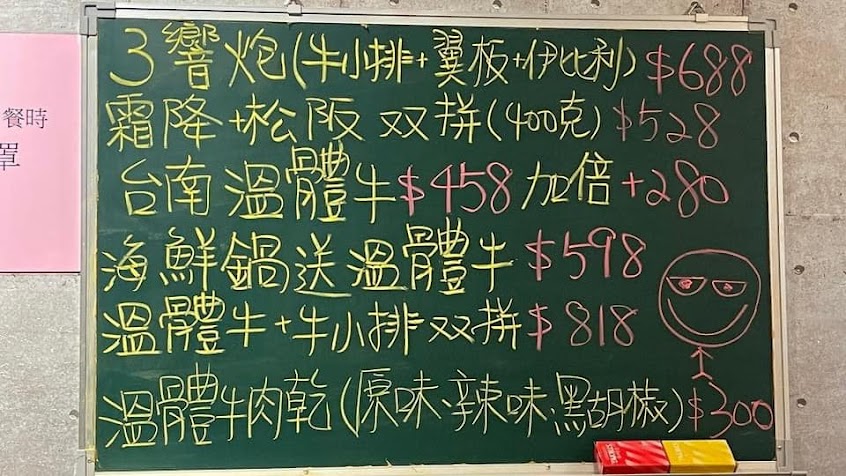 3響炮(牛小排+翼板+伊比利) $688
霜降+松阪双拼(400克) $528
台南溫體牛$458加倍+280
海鮮鍋送溫體牛 $598
溫體牛+牛小排双拼$818
溫體牛肉乾(原味·辣味·黑胡椒)$300
餐時
罩